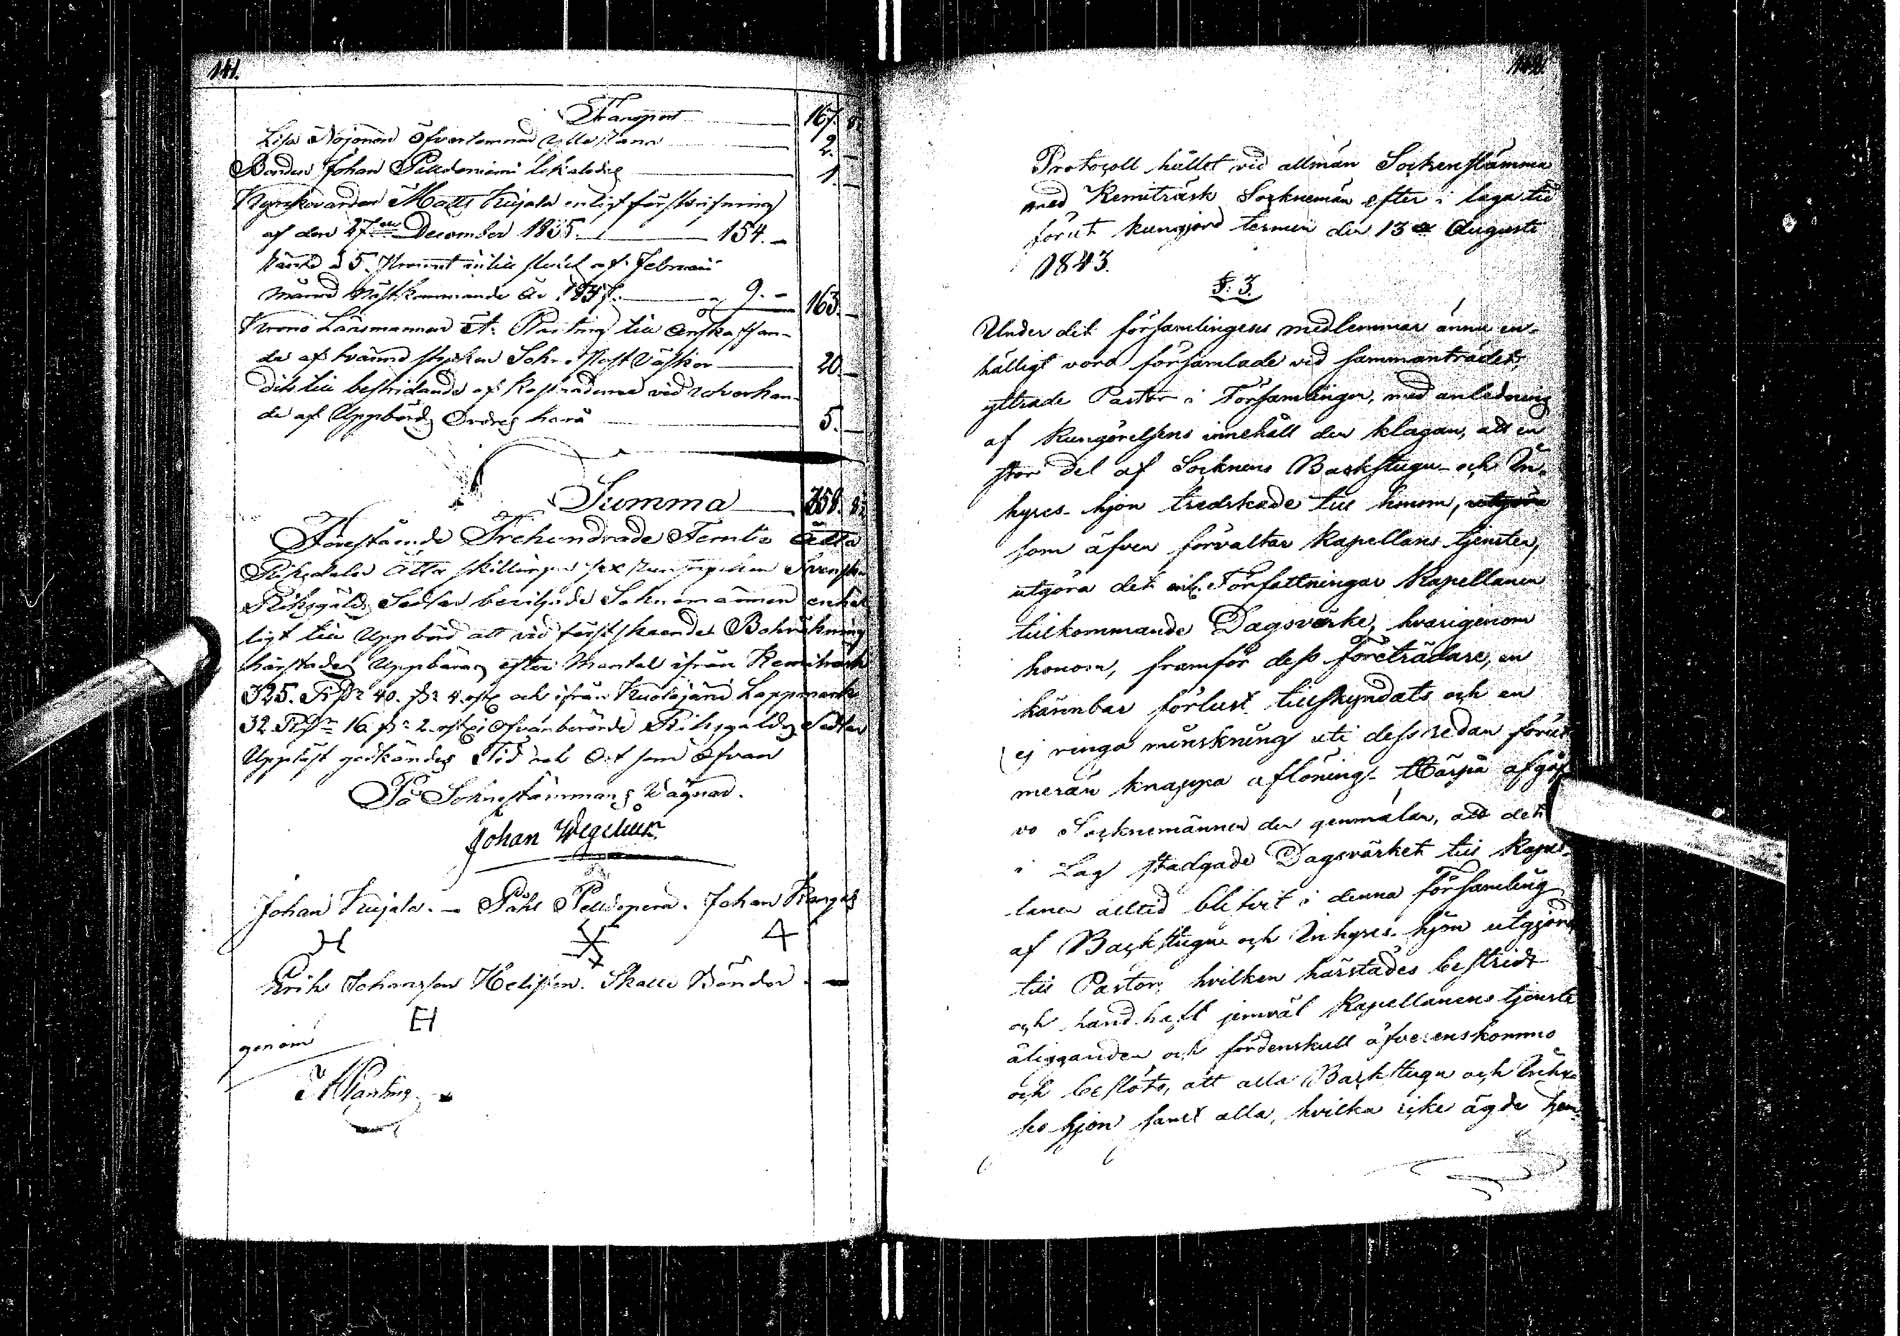 141.
Transport 167. 8.
Lisa Nojonen öfverlemnad Ulla Hanna 2. —
Bonden Johan Pelldoniemi likaledes 1. —
Kyrkovärden Matts Kujala enligt förskrifning
af den 27de December 1835. 154. —
Ränta à 5. Procent intill slutet af Februarii
månad nästkommande År 1837. 9. — 163. —
Krono Länsmannen A. Planting till anskaffan-
de af tvänne stycken Sokne Post Väskor 20. —
dito till bestridande af kostnaderne vid
de af Uppbörds Ordres hära 5. —
Summa 358. 8.
Förestående Trehundrade Femtio Åtta
Riksdaler Åtta skillingar sex Svenska
Riksgälds Sedlar beviljade Soknemännen enhäl
ligt till Uppbörd att vid först skeende Bokräkning
härstädes Uppbäras efter Mantal ifrån Kemiträsk
325. Rdr 40. sk 4. och ifrån Kuolajärvi Lappmark
32 Rdr 16 sk 2. i Ofvanberörde Riksgälds Sedlar
Uppläst godkändes Tid och Ort som ofvan
På Soknestämmans Vägnar.
Johan Wegelius.
Johan Kujala. — Påhl Pelldopera. Johan Kangas
Erik Johansson Skalle Bönder. —
genom
Planting
142.
Protocoll hållet vid allmän Sockenstämma
med Kemiträsk Socknemän efter i laga tid
förut kungjord termin den 13de Augusti
1843.
§. 3.
Under det församlingens medlemmar ännu en-
hälligt voro församlade vid sammanträdet,
yttrade Pastor i Församlingen, med anledning
af kungörelsens innehåll den klagan, att en
stor del af Socknens Backstugu- och In-
hyses- hjon tredskade till honom,
som äfven förvaltar Kapellans tjensten,
utgöra det enl. Författningar Kapellanen
tillkommande Dagsvärke, hvarigenom
honom, framför dess företrädare, en
kännbar förlust tillskyndats och en
ej ringa minskning uti dess redan förut
meran knappa aflöning. Härpå afgåf
vo Socknemännen den genmälan, att det
i Lag stadgade Dagsvärket till Kapel-
lanen alltid blifvit i denna Församling
af Backstugu och Inhyses hjon utgjord
till Pastor, hvilken härstädes bestridt
och handhaft jemväl Kapellanens tjenste
åligganden och fördenskull öfverenskommo
och beslöto, att alla Backstugu och Inhy-
ses hjon samt alla, hvilka icke ägde hem-